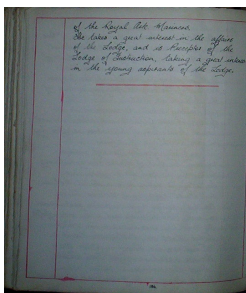 of the Royal Ark Mariners.
He takes a great interest in the affairs
of the Lodge, and is Preceptor of the
Lodge of Instruction, taking a great interest
in the young aspirants of the Lodge.